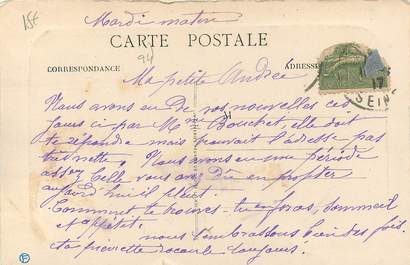 15€
Mardi matin
94
CARTE POSTALE
CORRESPONDANCE
ADRESSE
Ma petite Andrée
17
SEINE
Nous avons eu de vos nouvelles ces
jours ci par Mme Bouchet elle doit
te répondre mais trouvait l'adresse pas
très nette. Nous avons eu une période
assez belle vous avez dû en profiter
aujourd'hui il pleut.
Comment te trouves-tu forces, sommeil
et appétit.
nous t'embrassons bien des fois.
ta pierrette toujours
E